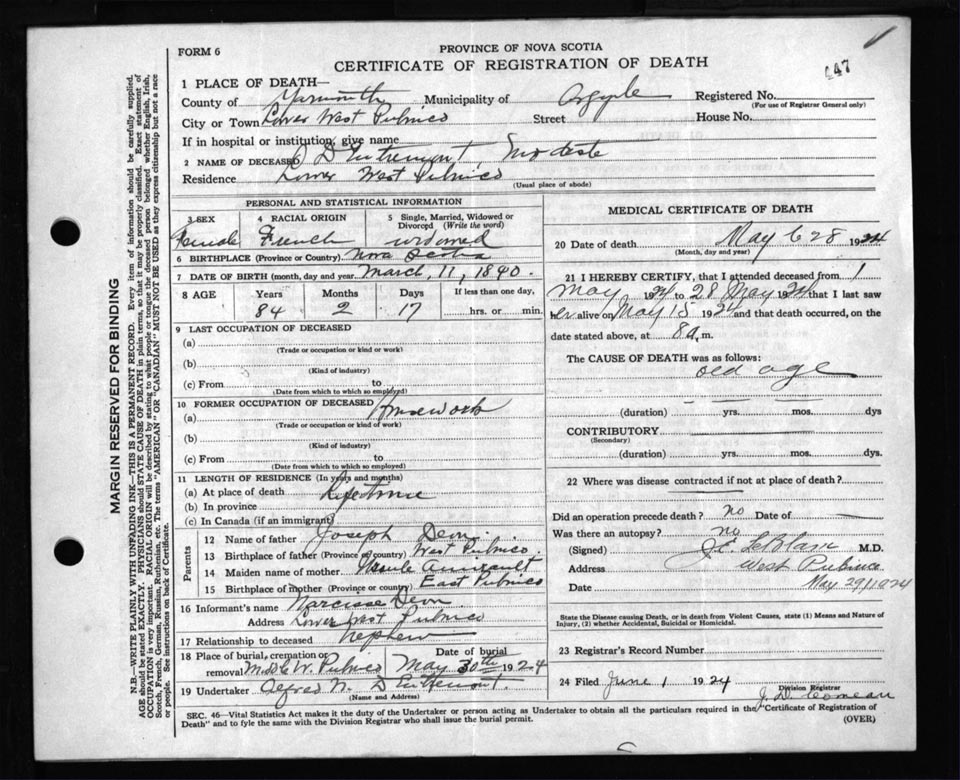 FORM 6
PROVINCE OF NOVA SCOTIA
CERTIFICATE OF REGISTRATION OF DEATH
647
1 PLACE OF DEATH—
County of Yarmouth Municipality of Argyle Registered No.
(For use of Registrar General only)
City or Town Lower West Pubnico Street House No.
If in hospital or institution, give name
2 NAME OF DECEASED D'Entremont, Modeste
Residence Lower West Pubnico
(Usual place of abode)
PERSONAL AND STATISTICAL INFORMATION
3 SEX 4 RACIAL ORIGIN 5 Single, Married, Widowed or Divorced (Write the word)
Female French widowed
6 BIRTHPLACE (Province or Country) Nova Scotia
7 DATE OF BIRTH (month, day and year March, 11, 1840.
8 AGE Years Months Days If less than one day,
84 2 17 hrs. or min.
9 LAST OCCUPATION OF DECEASED
(a)
(Trade or occupation or kind or work)
(b)
(Kind of industry)
(c) From to
(Date from which to which so employed)
10 FORMER OCCUPATION OF DECEASED
(a) Housework
(Trade or occupation or kind of work)
(b)
(Kind of industry)
(c) From to
(Date from which to which so employed)
11 LENGTH OF RESIDENCE (In years and months)
(a) At place of death Lifetime
(b) In province
(c) In Canada (if an immigrant)
Parents
12 Name of father Joseph Deon.
13 Birthplace of father (Province or country) West Pubnico
14 Maiden name of mother Ursule Amirault
15 Birthplace of mother (Province or country) East Pubnico
16 Informant's name Narcisse Deon
Address Lower West Pubnico
17 Relationship to deceased Nephew
18 Place of burial, cremation or removal W. Pubnico Date of burial May 30th 1924
19 Undertaker Alfred N. D'Entremont.
(Name and Address)
MEDICAL CERTIFICATE OF DEATH
20 Date of death May 28 1924
(Month, day and year)
21 I HEREBY CERTIFY, that I attended deceased from 1
May 1924 to 28 May 1924 that I last saw
her alive on May 15 1924 and that death occurred, on the
date stated above, at 8 a. m.
The CAUSE OF DEATH was as follows:
old age
(duration) yrs. mos. dys
CONTRIBUTORY
(Secondary)
(duration) yrs. mos. dys.
22 Where was disease contracted if not at place of death?
Did an operation precede death? no Date of
Was there an autopsy? no
(Signed) J.E. LeBlanc M.D.
Address West Pubnico
Date May 29/1924
State the Disease causing Death, or in Death from Violent Causes, state (1) Means and Nature of
Injury, (2) whether Accidental, Suicidal or Homicidal.
23 Registrar's Record Number
24 Filed June 1 1924
Division Registrar
SEC. 46—Vital Statistics Act makes it the duty of the Undertaker or person acting as Undertaker to obtain all the particulars required in the "Certificate of Registration of
Death" and to fyle the same with the Division Registrar who shall issue the burial permit.
(OVER)
MARGIN RESERVED FOR BINDING
N.B.—WRITE PLAINLY WITH UNFADING INK—THIS IS A PERMANENT RECORD. Every item of information should be carefully supplied.
AGE should be stated EXACTLY. PHYSICIANS should STATE CAUSE OF DEATH in plain terms, so that it may be properly classified. Exact statement of
OCCUPATION is very important. RACIAL ORIGIN will be described by stating to what people or tongue the deceased person belonged whether English, Irish,
Scotch, French, German, Russian, Ruthenian, etc. The terms "AMERICAN" OR "CANADIAN" MUST NOT BE USED as they express citizenship but not a race
or people. See instructions on back of Certificate.